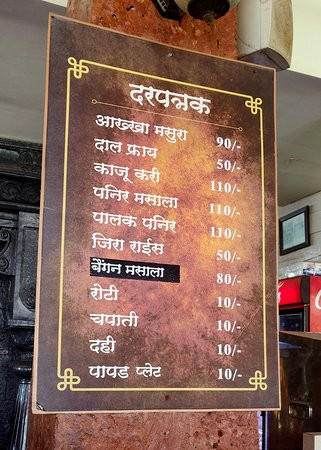 दरपत्रक
आख्खा मसुरा 90/-
दाल फ्राय 50/-
काजू करी 110/-
पनिर मसाला 110/-
पालक पनिर 110/-
जिरा राईस 50/-
बैंगन मसाला 80/-
रोटी 10/-
चपाती 10/-
दही 10/-
पापड प्लेट 10/-